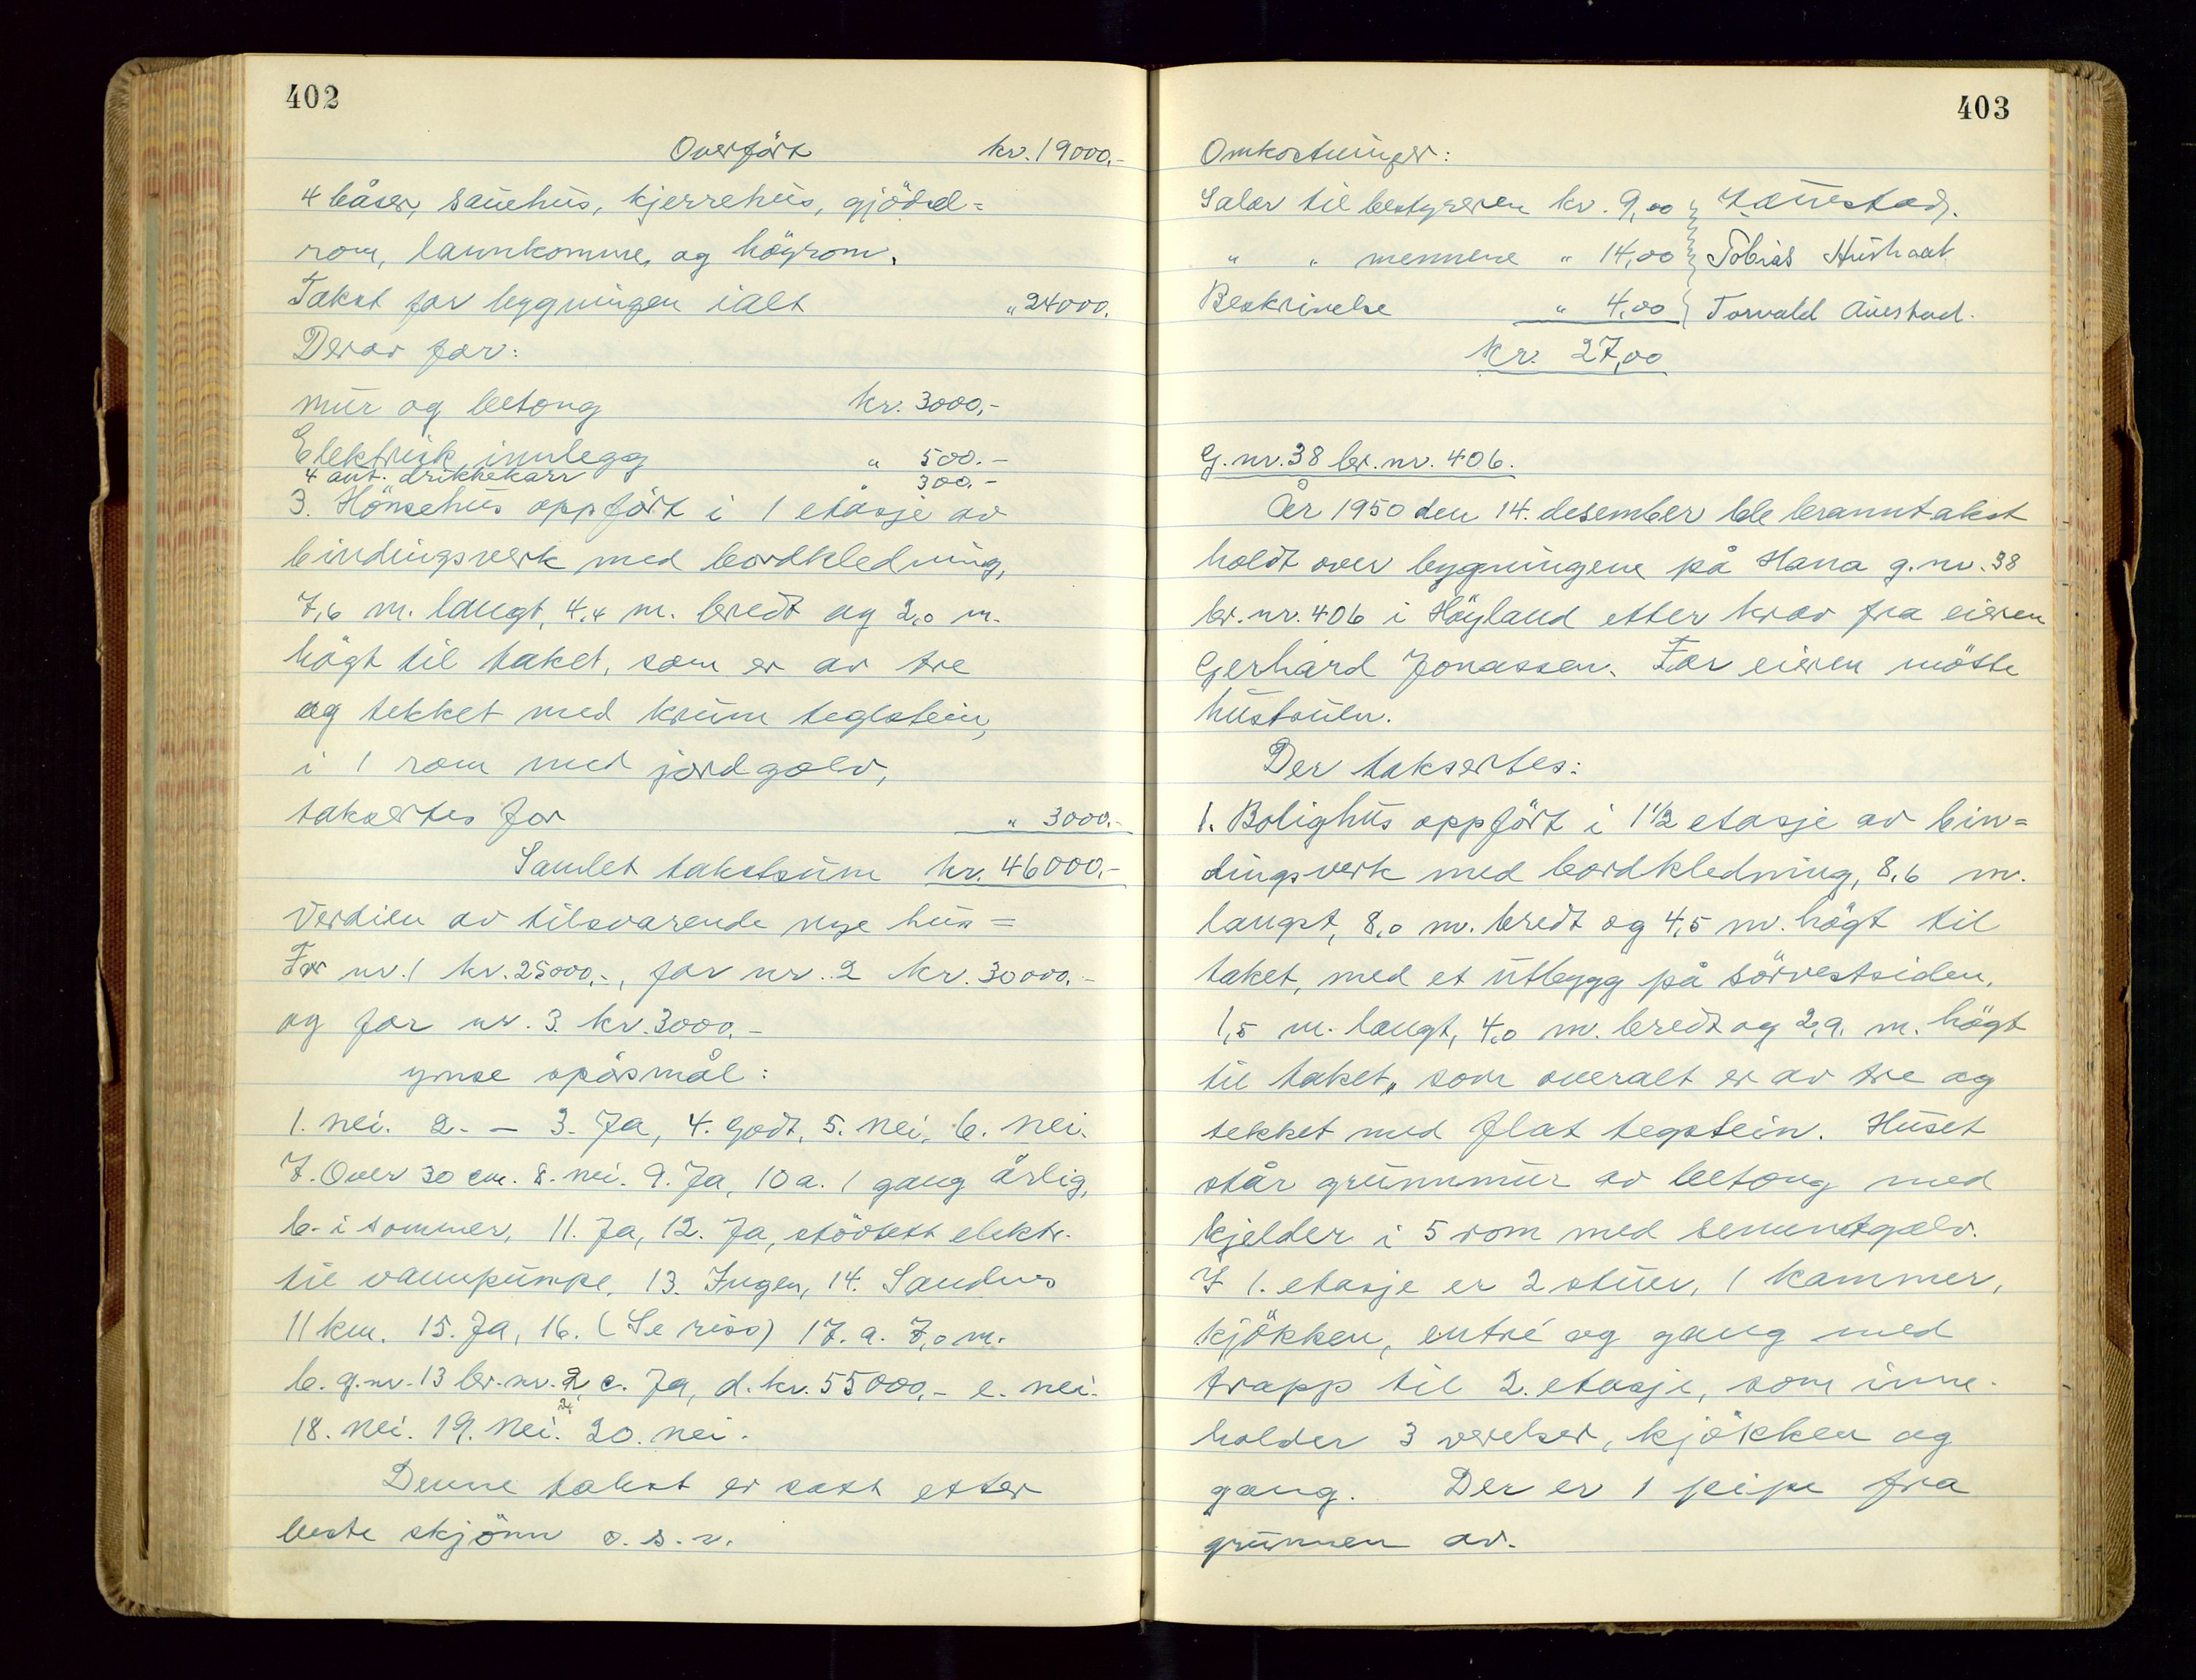 402
Overfört kr. 19000.-
4 båser, sauehus, kjerrehus, gjödsel=
rom, lannkomme, og höyrom.
Takst for bygningen ialt " 24000.
Derav for:
mur og betong kr. 3000,-
Elektrisk innlegg " 500.-
4 aut. drikkekarr 300.-
3. Hönsehus oppfört i 1 etasje av
bindingsverk med bordkledning,
7,6 m. langt, 4,4 m. bredt og 2,0 m.
högt til taket, som er av tre
og tekket med krum teglstein,
i 1 rom med jordgolv,
taksertes for " 3000.-
Samlet takstsum kr. 46000.-
Verdien av tilsvarende nye hus =
For nr. 1 kr. 25000,-, for nr. 2 kr. 30000.-
og for nr. 3. kr. 3000.-
ymse spörsmål:
1. nei. 2. - 3. Ja, 4. Godt, 5. nei, 6. nei.
7. Over 30 cm. 8. nei. 9. Ja, 10 a. 1 gang årlig,
b. i sommer, 11. Ja, 12. Ja, stövtett elektr.
til vannpumpe, 13. Ingen, 14. Sandnes
11 km. 15. Ja, 16. (Se riss) 17. a. 7,0 m.
b. g.nr. 13 br.nr. 2, c. Ja, d. kr. 55000,- e. nei.
18. nei. 19. nei. 20. nei.
Denne takst er satt etter
beste skjönn o. s. v.
403
Omkostninger:
Salær til bestyreren kr. 9,00
" " mennene " 14,00 Tobias
Beskrivelse " 4,00 Torvald Auestad.
kr. 27,00
G. nr. 38 br. nr. 406.
År 1950 den 14. desember ble branntakst
holdt over bygningene på Hana g. nr. 38
br. nr. 406 i Höyland etter krav fra eieren
Gerhard Jonassen. For eieren mötte
hustruen.
Der taksertes:
1. Bolighus oppfört i 1 1/2 etasje av bin=
dingsverk med bordkledning, 8,6 m.
langt, 8,0 m. bredt og 4,5 m. högt til
taket, med et utbygg på sörvestsiden,
1,5 m. langt, 4,0 m. bredt og 2,9. m. högt
til taket, som overalt er av tre og
tekket med flat tegstein. Huset
står grunnmur av betong med
kjelder i 5 rom med sementgolv.
I 1. etasje er 2 stuer, 1 kammer,
kjökken, entré og gang med
trapp til 2. etasje, som inne-
holder 3 værelser, kjökken og
gang. Der er 1 pipe fra
grunnen av.